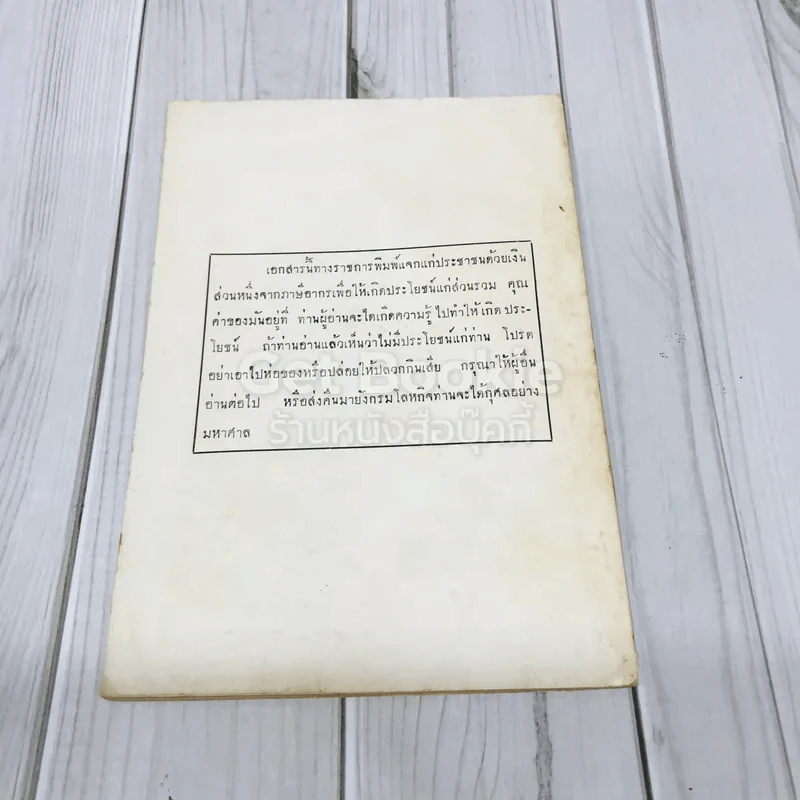 เอกสารนี้ทางราชการพิมพ์แจกแก่ประชาชนด้วยเงิน
ส่วนหนึ่งจากภาษีอากรเพื่อให้เกิดประโยชน์แก่ส่วนรวม คุณ
ค่าของมันอยู่ที่ ท่านผู้อ่านจะได้เกิดความรู้ ไปทำให้เกิด ประ-
โยชน์ ถ้าท่านอ่านแล้วเห็นว่าไม่มีประโยชน์แก่ท่าน โปรด
อย่าเอาไปห่อของหรือปล่อยให้ปลวกกินเสีย กรุณาให้ผู้อื่น
อ่านต่อไป หรือส่งคืนมายังกรมโลหกิจท่านจะได้กุศลอย่าง
มหาศาล
Get Bookie
ร้านหนังสือบุ๊คกี้